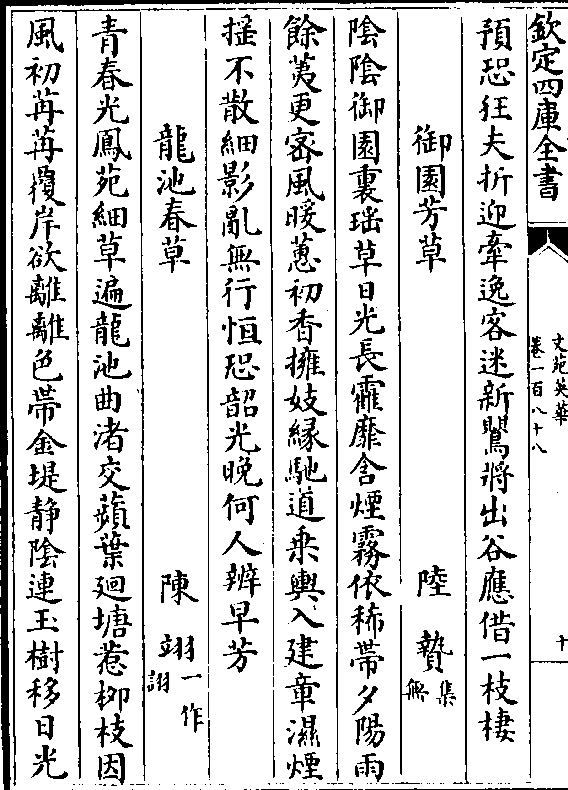 欽定四庫全書
文苑英華
卷一百八十八
十
預恐狂夫折迎牽逸客迷新鶯將出谷應借一枝棲
御園芳草
陸贄集無
陰陰御園裏瑶草日光長靃靡含煙霧依稀帶夕陽雨
餘荑更密風暖蕙初香擁妓縁馳道乘輿入建章濕煙
揺不散細影亂無行恒恐韶光晚何人辨早芳
龍池春草
陳翊一作詡
青春光鳳苑細草遍龍池曲渚交蘋葉廻塘惹柳枝因
風初苒苒覆岸欲離離色帶金堤静陰連玉樹移日光